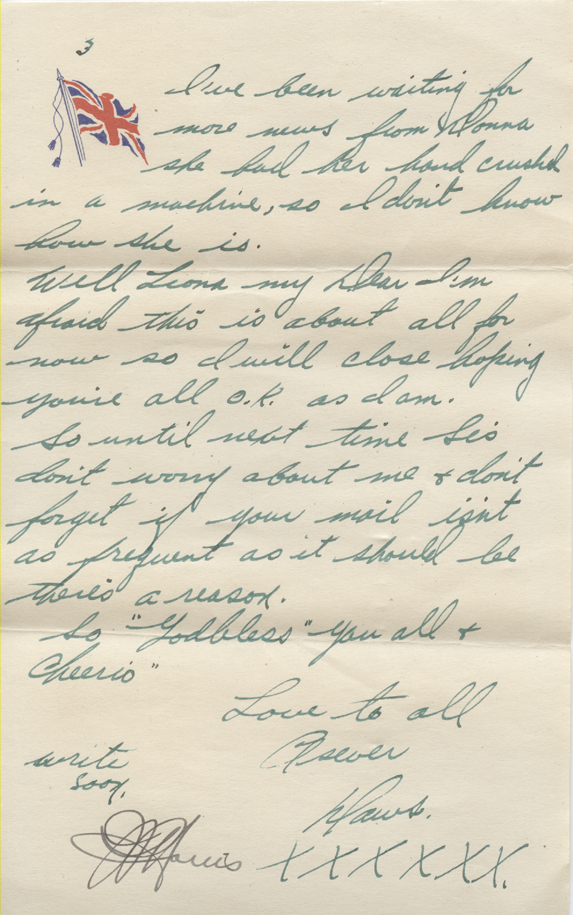 3
I've been waiting for
more news from Donna
she had her hand crushed
in a machine, so I don't know
how she is.
Well Leona my Dear I'm
afraid this is about all for
now so I will close hoping
you're all O.K. as I am.
So until next time Sis
don't worry about me & don't
forget if your mail isn't
as frequent as it should be
there's a reason.
So "Godbless" you all &
Cheerio"
Love to all
As ever
write
soon.
XXXXXX.